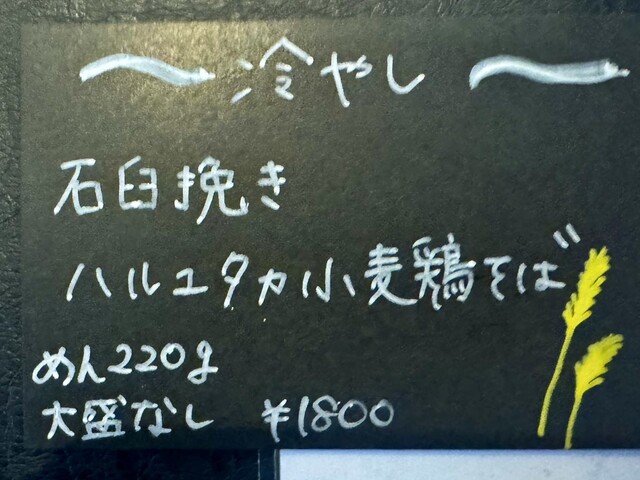 〜冷やし〜
石臼挽き
ハルユタカ小麦鶏そば
めん220g
大盛なし ¥1800